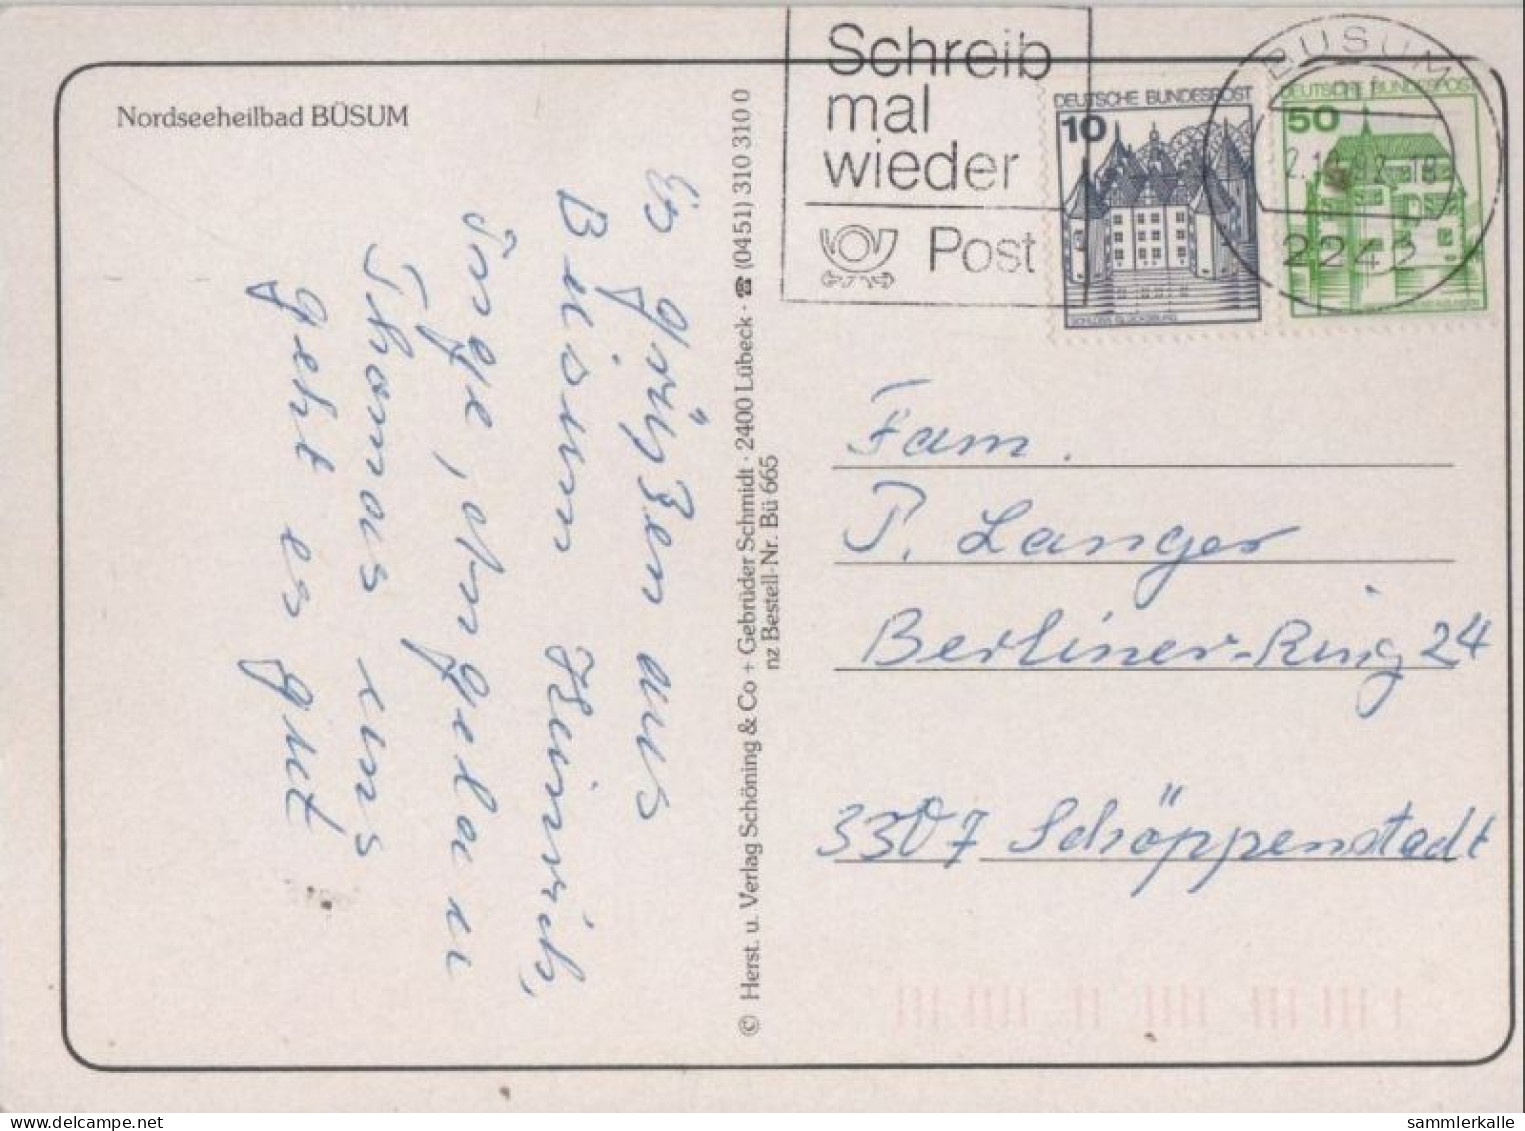 Nordseeheilbad BÜSUM
Es grüßen aus
Büsum Heinrich,
Inge, Angela u
Thomas uns
geht es gut
© Herst. u. Verlag Schöning & Co + Gebrüder Schmidt · 2400 Lübeck · ☎ (0451) 310 310 0
nz Bestell-Nr. Bü 665
Schreib
mal
wieder
Post
DEUTSCHE BUNDESPOST
10
SCHLOSS GLÜCKSBURG
DEUTSCHE BUNDESPOST
50
BÜSUM
2242
Fam.
P. Langer
Berliner-Ring 24
3307 Schöppenstadt
delcampe.net
sammlerkalle